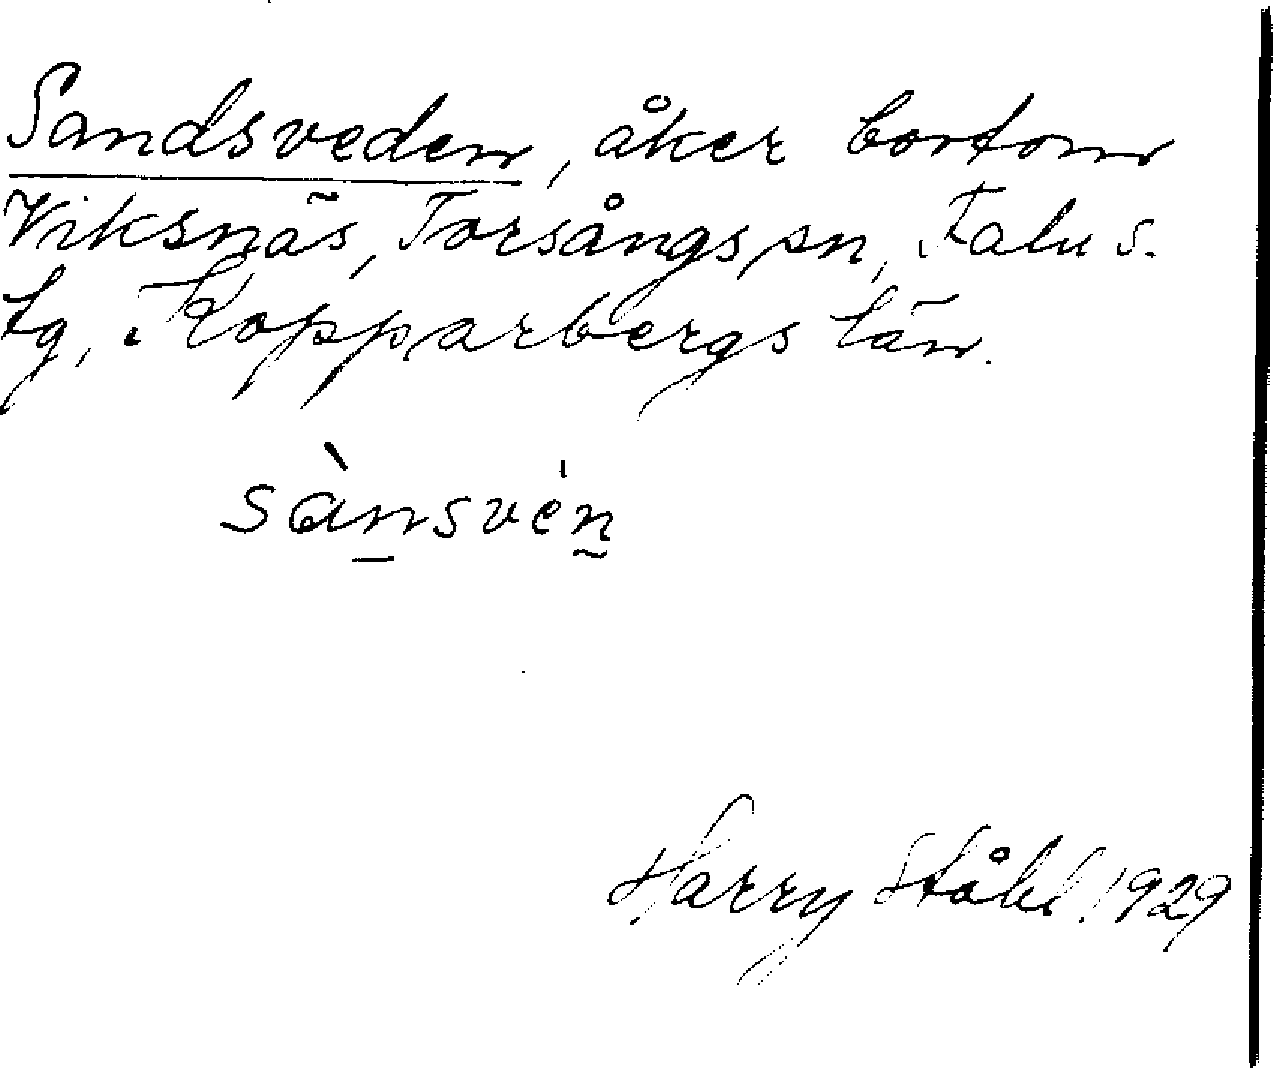 Sandsveden, åker bortom
Viksnäs, Torsångs sn, Falu s.
tg, Kopparbergs län.
sànsvén
Harry Ståhl 1929